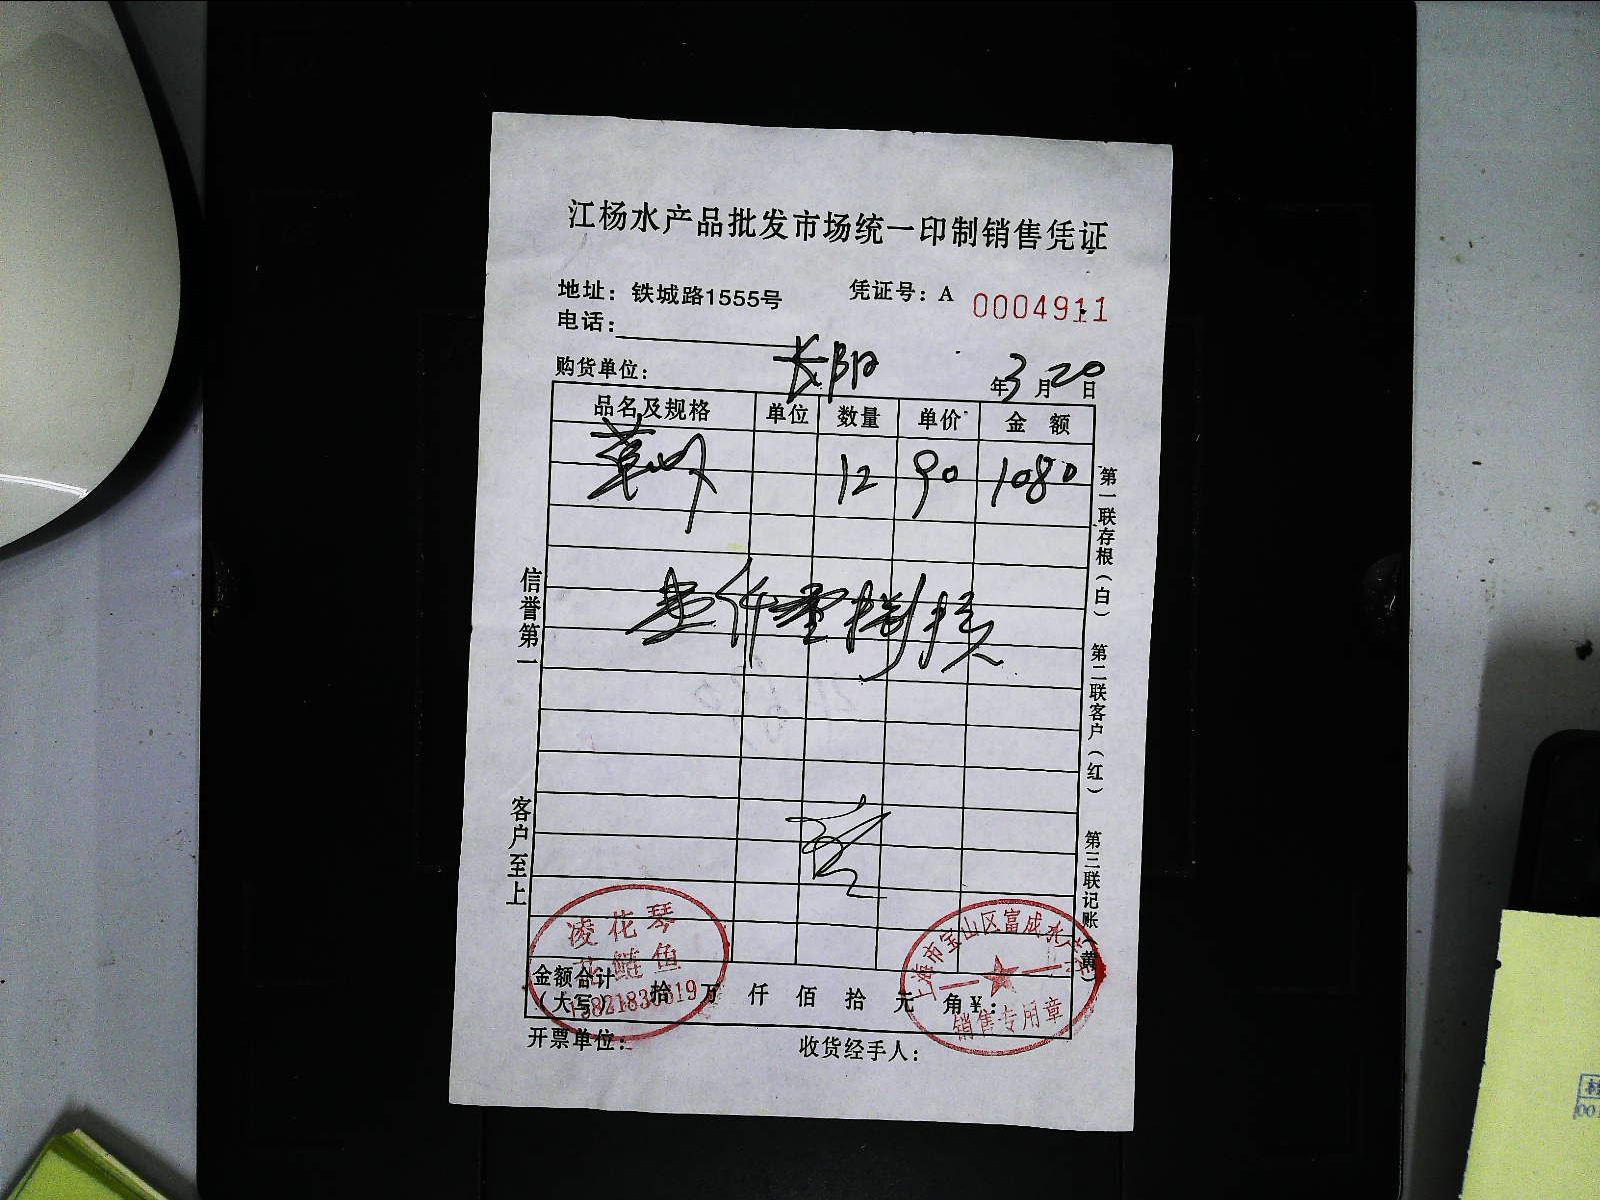 江杨水产品批发市场统一印制销售凭证
地址：铁城路1555号
凭证号：A 0004911
电话：
购货单位： 长阳
年3月20日
品名及规格 单位 数量 单价 金额
12 90 1080
壹仟零捌拾
信誉第一
客户至上
第一联存根（白） 第二联客户（红） 第三联记账（黄）
凌花琴
花鲢鱼
上海市宝山区富成水产
销售专用章
金额合计
（大写） 拾 万 仟 佰 拾 元 角¥：
开票单位：
收货经手人：